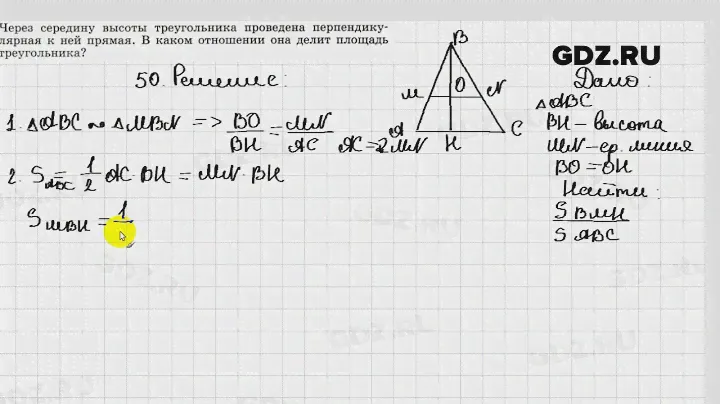 Через середину высоты треугольника проведена перпендику-
лярная к ней прямая. В каком отношении она делит площадь
треугольника?
GDZ.RU
50. Решение:
1. △ABC ~ △MBN => BO/BH = MN/AC AC = 2MN
2. S ABC = 1/2 AC · BH = MN · BH
S MBN = 1
B
M O N
A H C
Дано:
△ABC
BH – высота
MN – ср. линия
BO = OH
Найти:
S BMN
S ABC